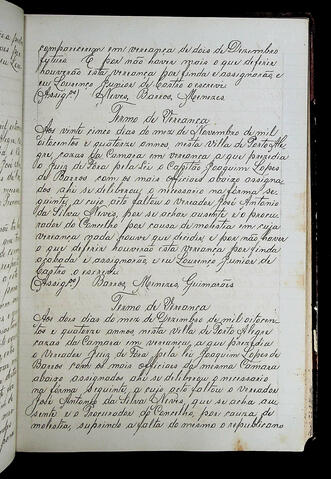 comparecerem em vereança de dois de Dezembro
futuro. E por não haver mais o que deferir
houverão esta vereança por finda e assignarão e
eu Lourenço Junior de Castro o escrevi
(Assig.os) Neves, Barros, Menezes
Termo de Vereança
Aos vinte cinco dias do mez de Novembro de mil
oitocentos e quatorze annos, nesta Villa de Porto Ale-
gre, cazas da Camara em vereança a que prezidio
o Juiz de Fora pela Lei o Capitão Joaquim Lopes
de Barros com os mais officiaes abaixo assigna-
dos ahi se deliberou o necessario na forma se-
guinte, a cujo acto faltou o vereador José Antonio
da Silva Neves, por se achar ausente e o procu-
rador do Concelho por causa de molestia em cuja
vereança nada houve que decidir e por não haver
o que deferir houverão esta vereança por finda
acabada e assignarão, eu Lourenço Junior de
Castro o escrevi
(Assig.os) Barros, Menezes Guimarães
Termo de Vereança
Aos dois dias do mez de Dezembro de mil oitocen-
tos e quatorze annos, nesta villa de Porto Alegre
cazas da Camara em vereança, a que prezidio
o Vereador Juiz de Fora pela lei Joaquim Lopes de
Barros com os mais officiaes da mesma Camara
abaixo assignados ahi se deliberou o necessario
na forma seguinte, a cujo acto faltou o vereador
José Antonio da Silva Neves, que se acha au-
sente e o Procurador do Concelho, por causa de
molestia, suprindo a falta do mesmo o republicano